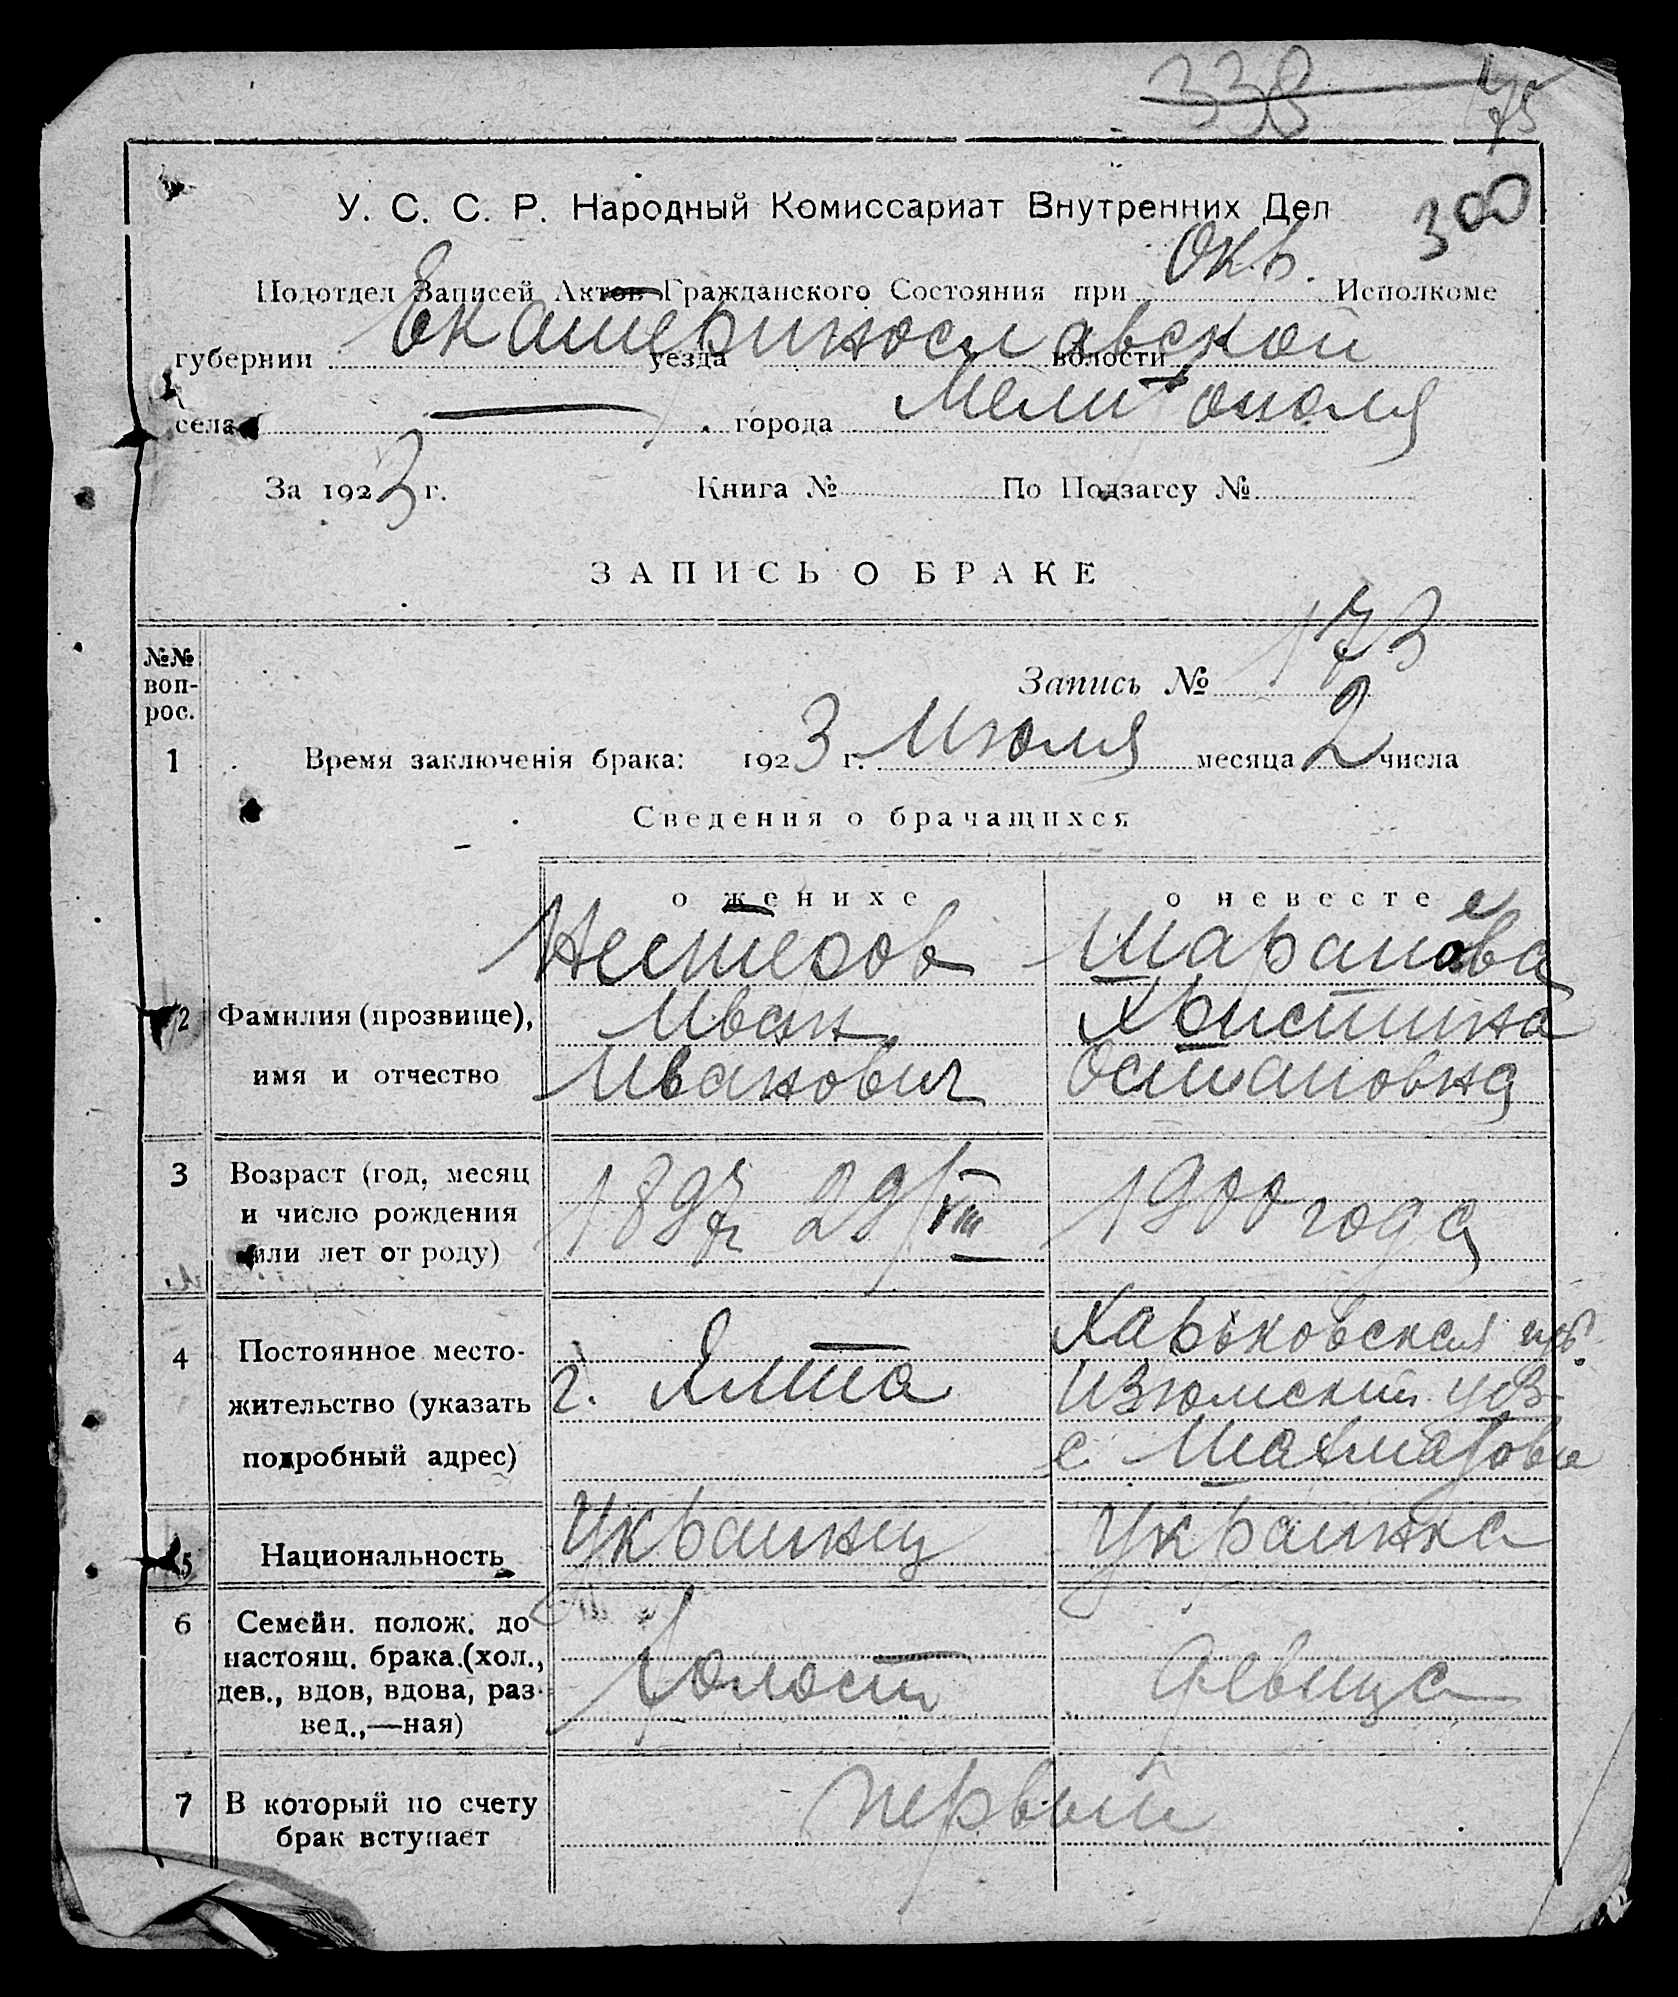 338 175
У. С. С. Р. Народный Комиссариат Внутренних Дел
300
Подотдел Записей Актов Гражданского Состояния при Окр. Исполкоме
губернии Екатеринославской уезда волости
села — города Мелитополя
За 1923 г. Книга № По Подзагсу №
ЗАПИСЬ О БРАКЕ
№№ воп-рос.
Запись № 173
1 Время заключенія брака: 1923 г. Июля месяца 2 числа
Сведения о брачащихся
о женихе о невесте
Нестеров Шарапова
2 Фамилия (прозвище), Иван Христина
имя и отчество Иванович Остаповна
3 Возраст (год, месяц 1897 29/VIII 1900 года
и число рождения
или лет от роду)
4 Постоянное место- Харьковская губ.
жительство (указать г. Ялта Изюмский уез.
подробный адрес) с.
5 Национальность Украинец Украинка
6 Семейн. полож. до
настоящ. брака (хол., Холост девица
дев., вдов, вдова, раз-
вед.,—ная)
7 В который по счету первый
брак вступает